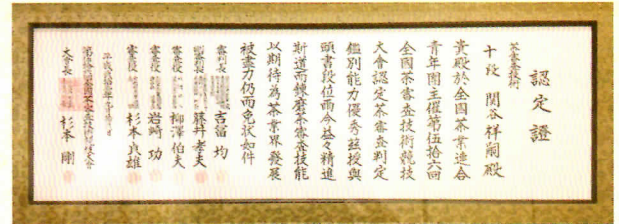 認定證
茶審査技術
十段 関谷祥嗣殿
貴殿於全国茶業連合
青年団主催第伍拾六回
全国茶審査技術競技
大會認定茶審査判定
鑑別能力優秀茲授與
頭書段位而今益々精進
斯道而錬磨茶審査技能
以期待為茶業界發展
被盡力仍而免状如件
審判長 吉留 均
副審査長 藤井孝夫
審査役 柳澤伯夫
審査役 岩崎 功
審査役 杉本良雄
大會長 杉本 剛